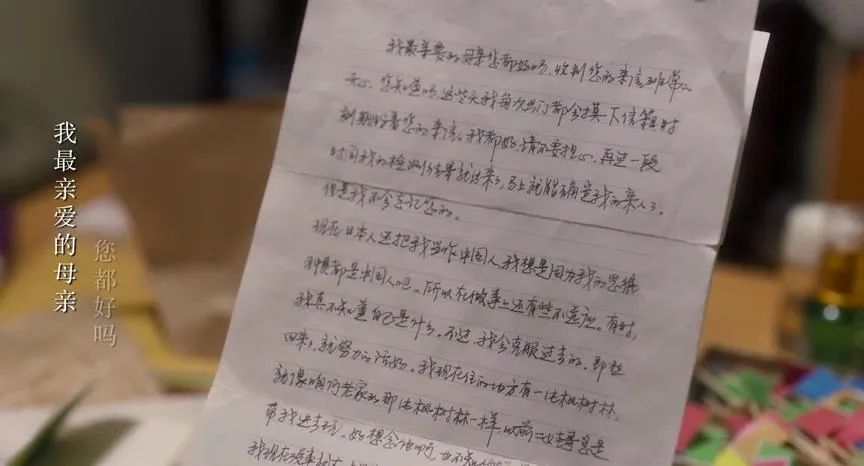 我最亲爱的母亲
您都好吗
我最亲爱的母亲您都好吗,收到您的来信
心,您知道吗,这些天我每次出门都会摸一下信箱,时
刻期盼着您的来信。我都好,请不要担心,再过一段
时间我的检测结果就出来了,马上就能确定我的亲人了。
但是我不会忘记您的。
现在日本人还把我当作中国人,我想是因为我的思维
习惯都是中国人吧。所以在做事上还有些不适应。有时,
我真不知道自己是什么。不过,我会克服过去的,即然
回来了,就努力的活好。我现在住的地方有一片枫树林,
就像咱们老家的那片枫树林一样,以前二哥总是
带我进去玩。好想念他呢
我现在没事就